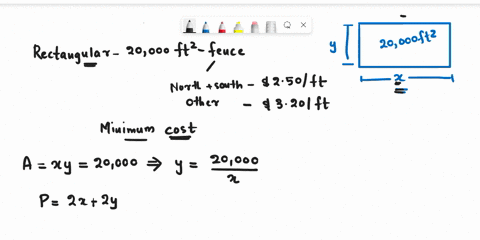 Rectangular - 20,000 ft² - fence
North + south - $2.50/ft
Other - $3.20/ft
Minimum cost
A = xy = 20,000 ⇒ y = 20,000/x
P = 2x + 2y
y
20,000ft²
x